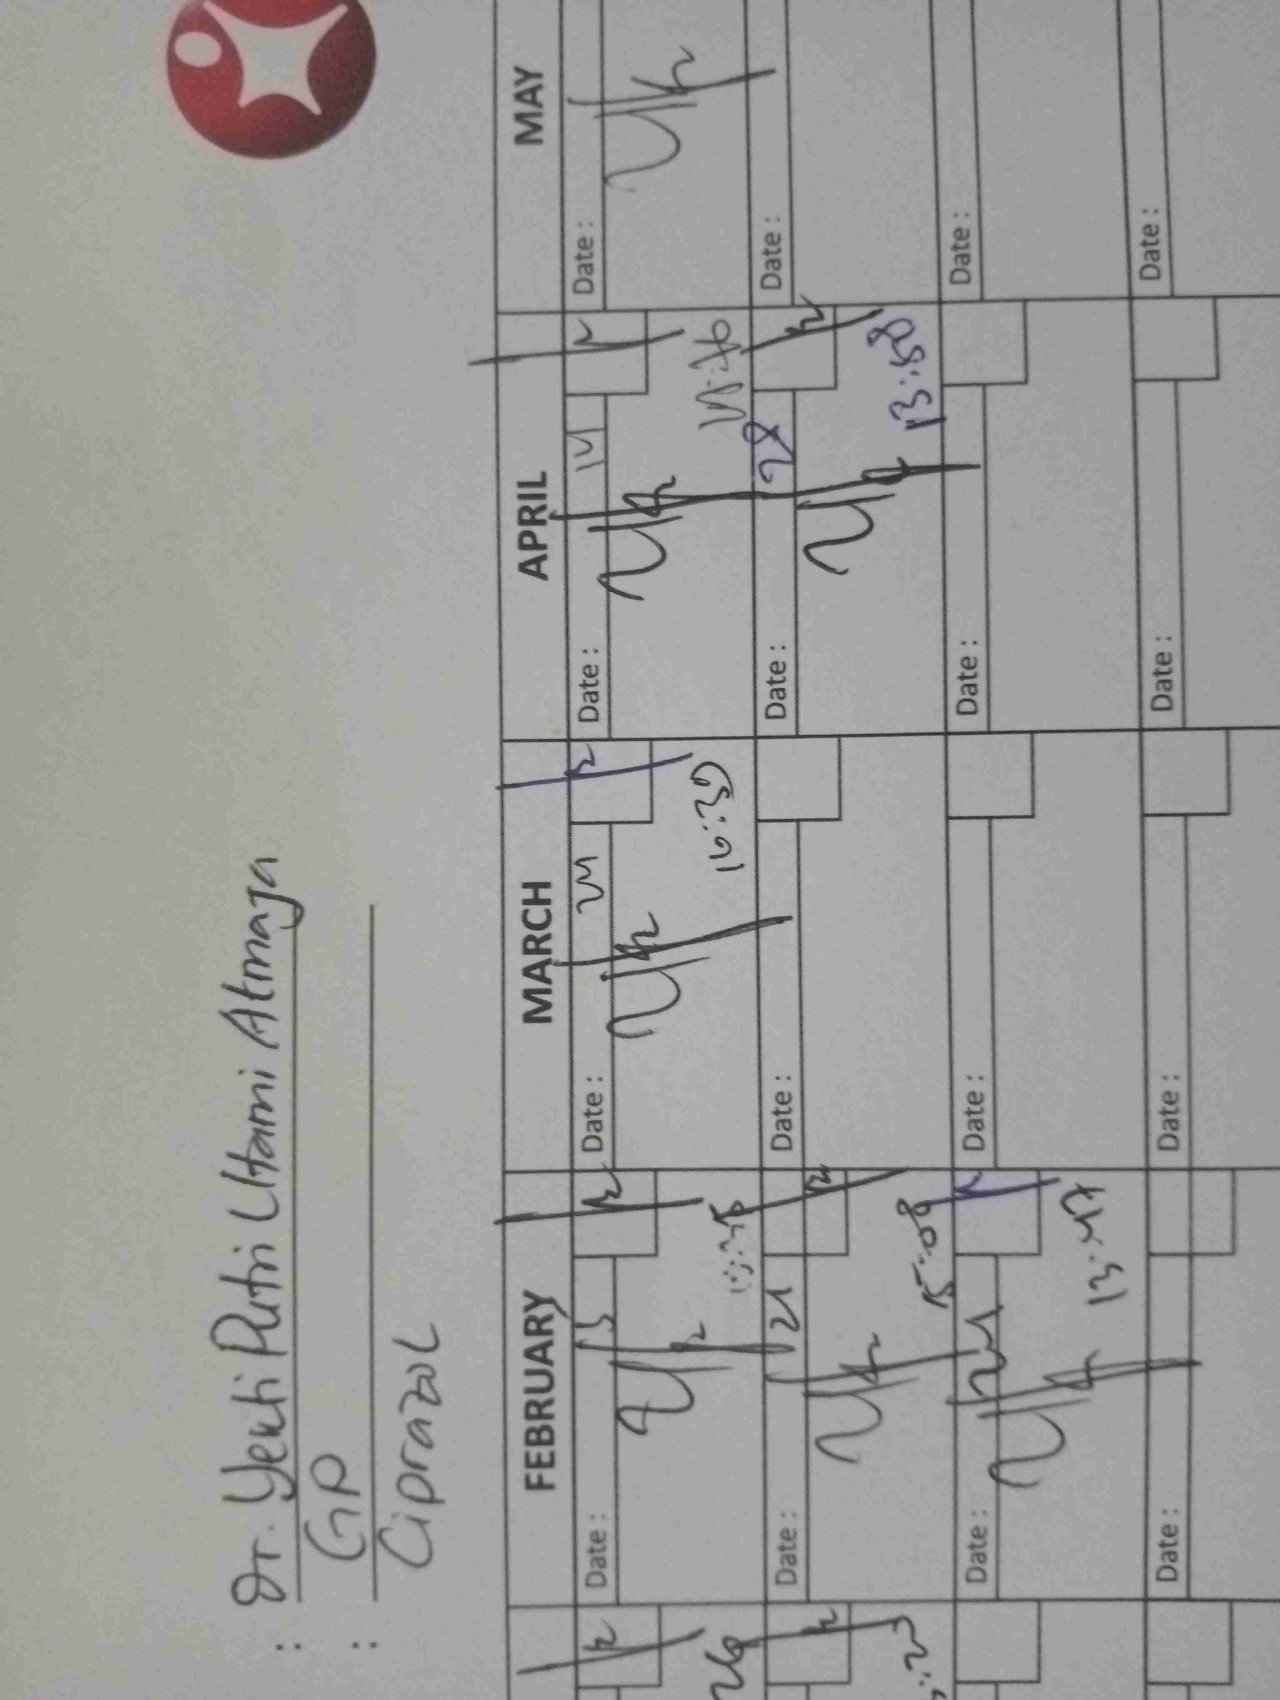 : Dr. Yenti Putri Utami Atmaja
: GP
Ciprazol
FEBRUARY MARCH APRIL MAY
Date : 13 Date : 24 Date : 14 Date :
16:30
Date : 21 Date : Date : 28 Date :
15:09 13:58
Date : Date : Date : Date :
13:47
Date : Date : Date : Date :